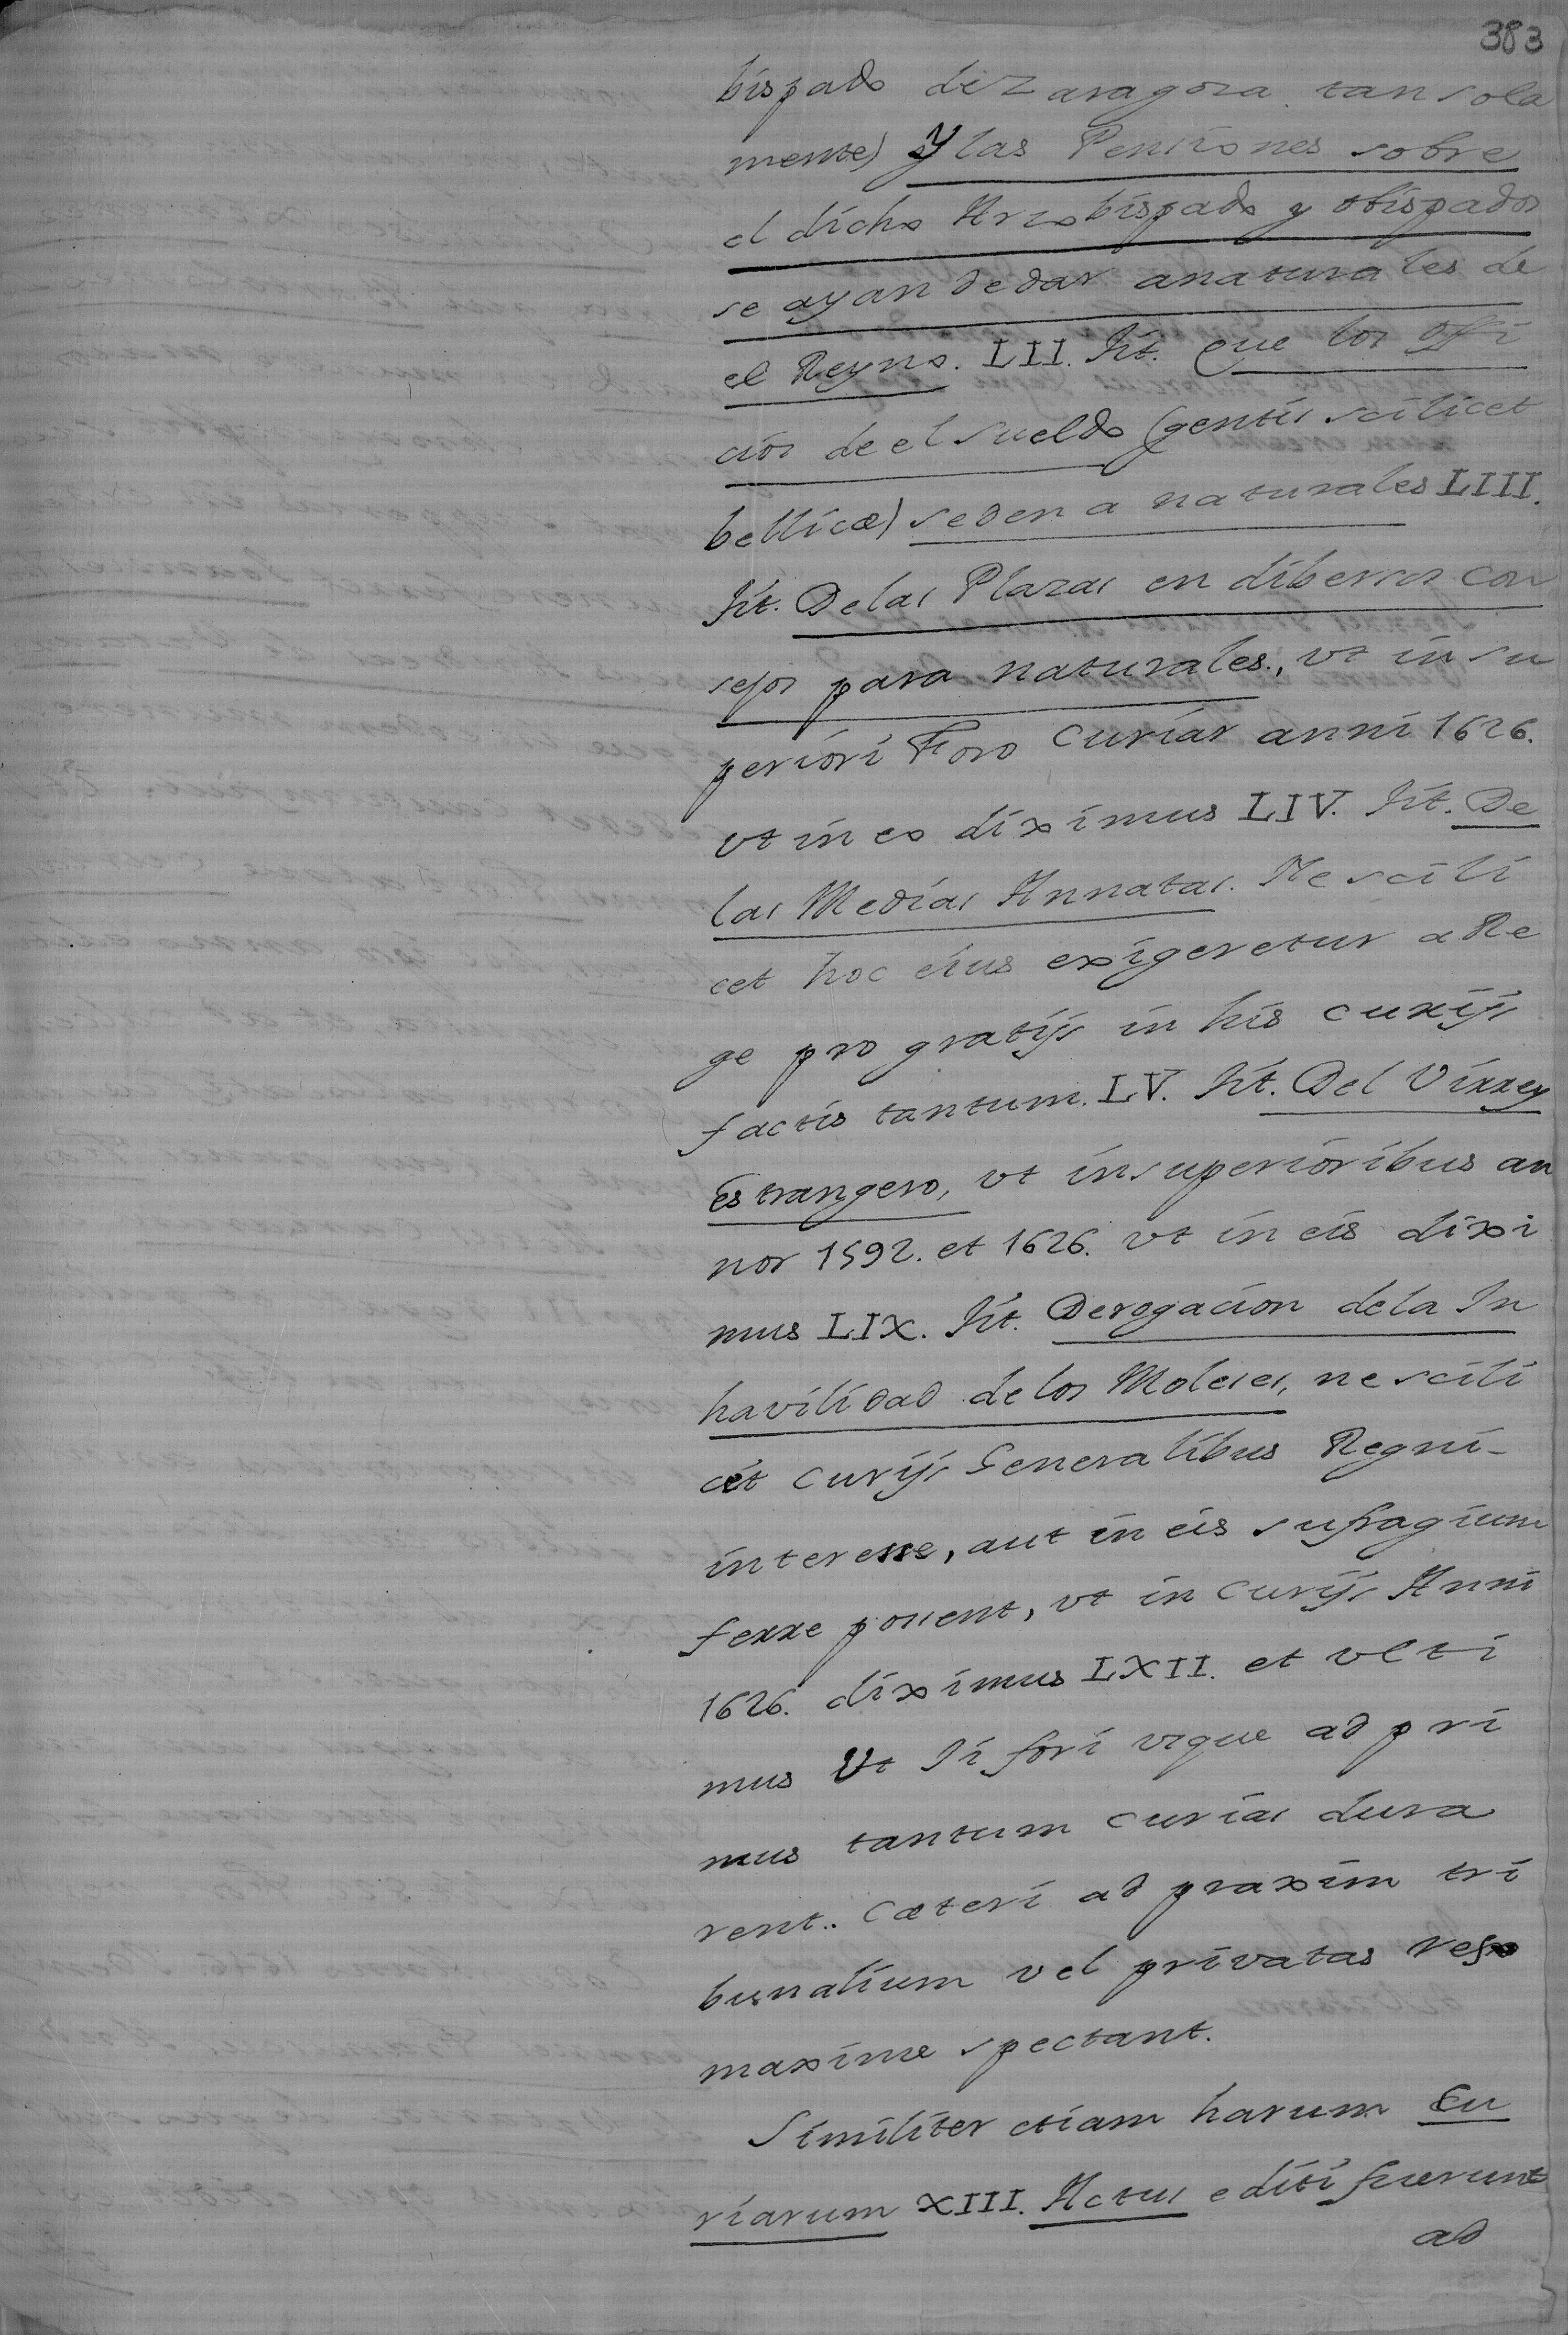 383
bispado de Zaragoza tan sola
mente) Y las Pensiones sobre
el dicho Arzobispado y obispados
se ayan de dar a naturales de
el Reyno. LII. Tit. Que los Offi
cios de el sueldo (gentis scilicet
bellicæ) se den a naturales LIII.
Tit. De las Plazas en diberssos con
sejos para naturales., vt in su
periori Foro Curiar anni 1626.
vt in eo diximus LIV. Tit. De
las Medias Annatas. Ne scili
cet hoc eius exigeretur a Re
ge pro gratijs in his curijs
factis tantum. LV. Tit. Del Virrey
Estrangero, vt in superioribus an
nor 1592. et 1626. vt in eis dixi
mus LIX. Tit. Derogacion de la In
havilidad de los Moleses, ne scili
cet curijs Generalibus Regni-
interesse, aut in eis sufragium
ferre possent, vt in curijs Anni
1626. diximus LXII. et vlti
mus Vt Ii fori vsque ad pri
mus tantum curias dura
rent.. Cæteri ad praxim tri
bunalium vel privatas res
maxime spectant.
Similiter etiam harum Cu
riarum XIII. Actus editi fuerunt
ad